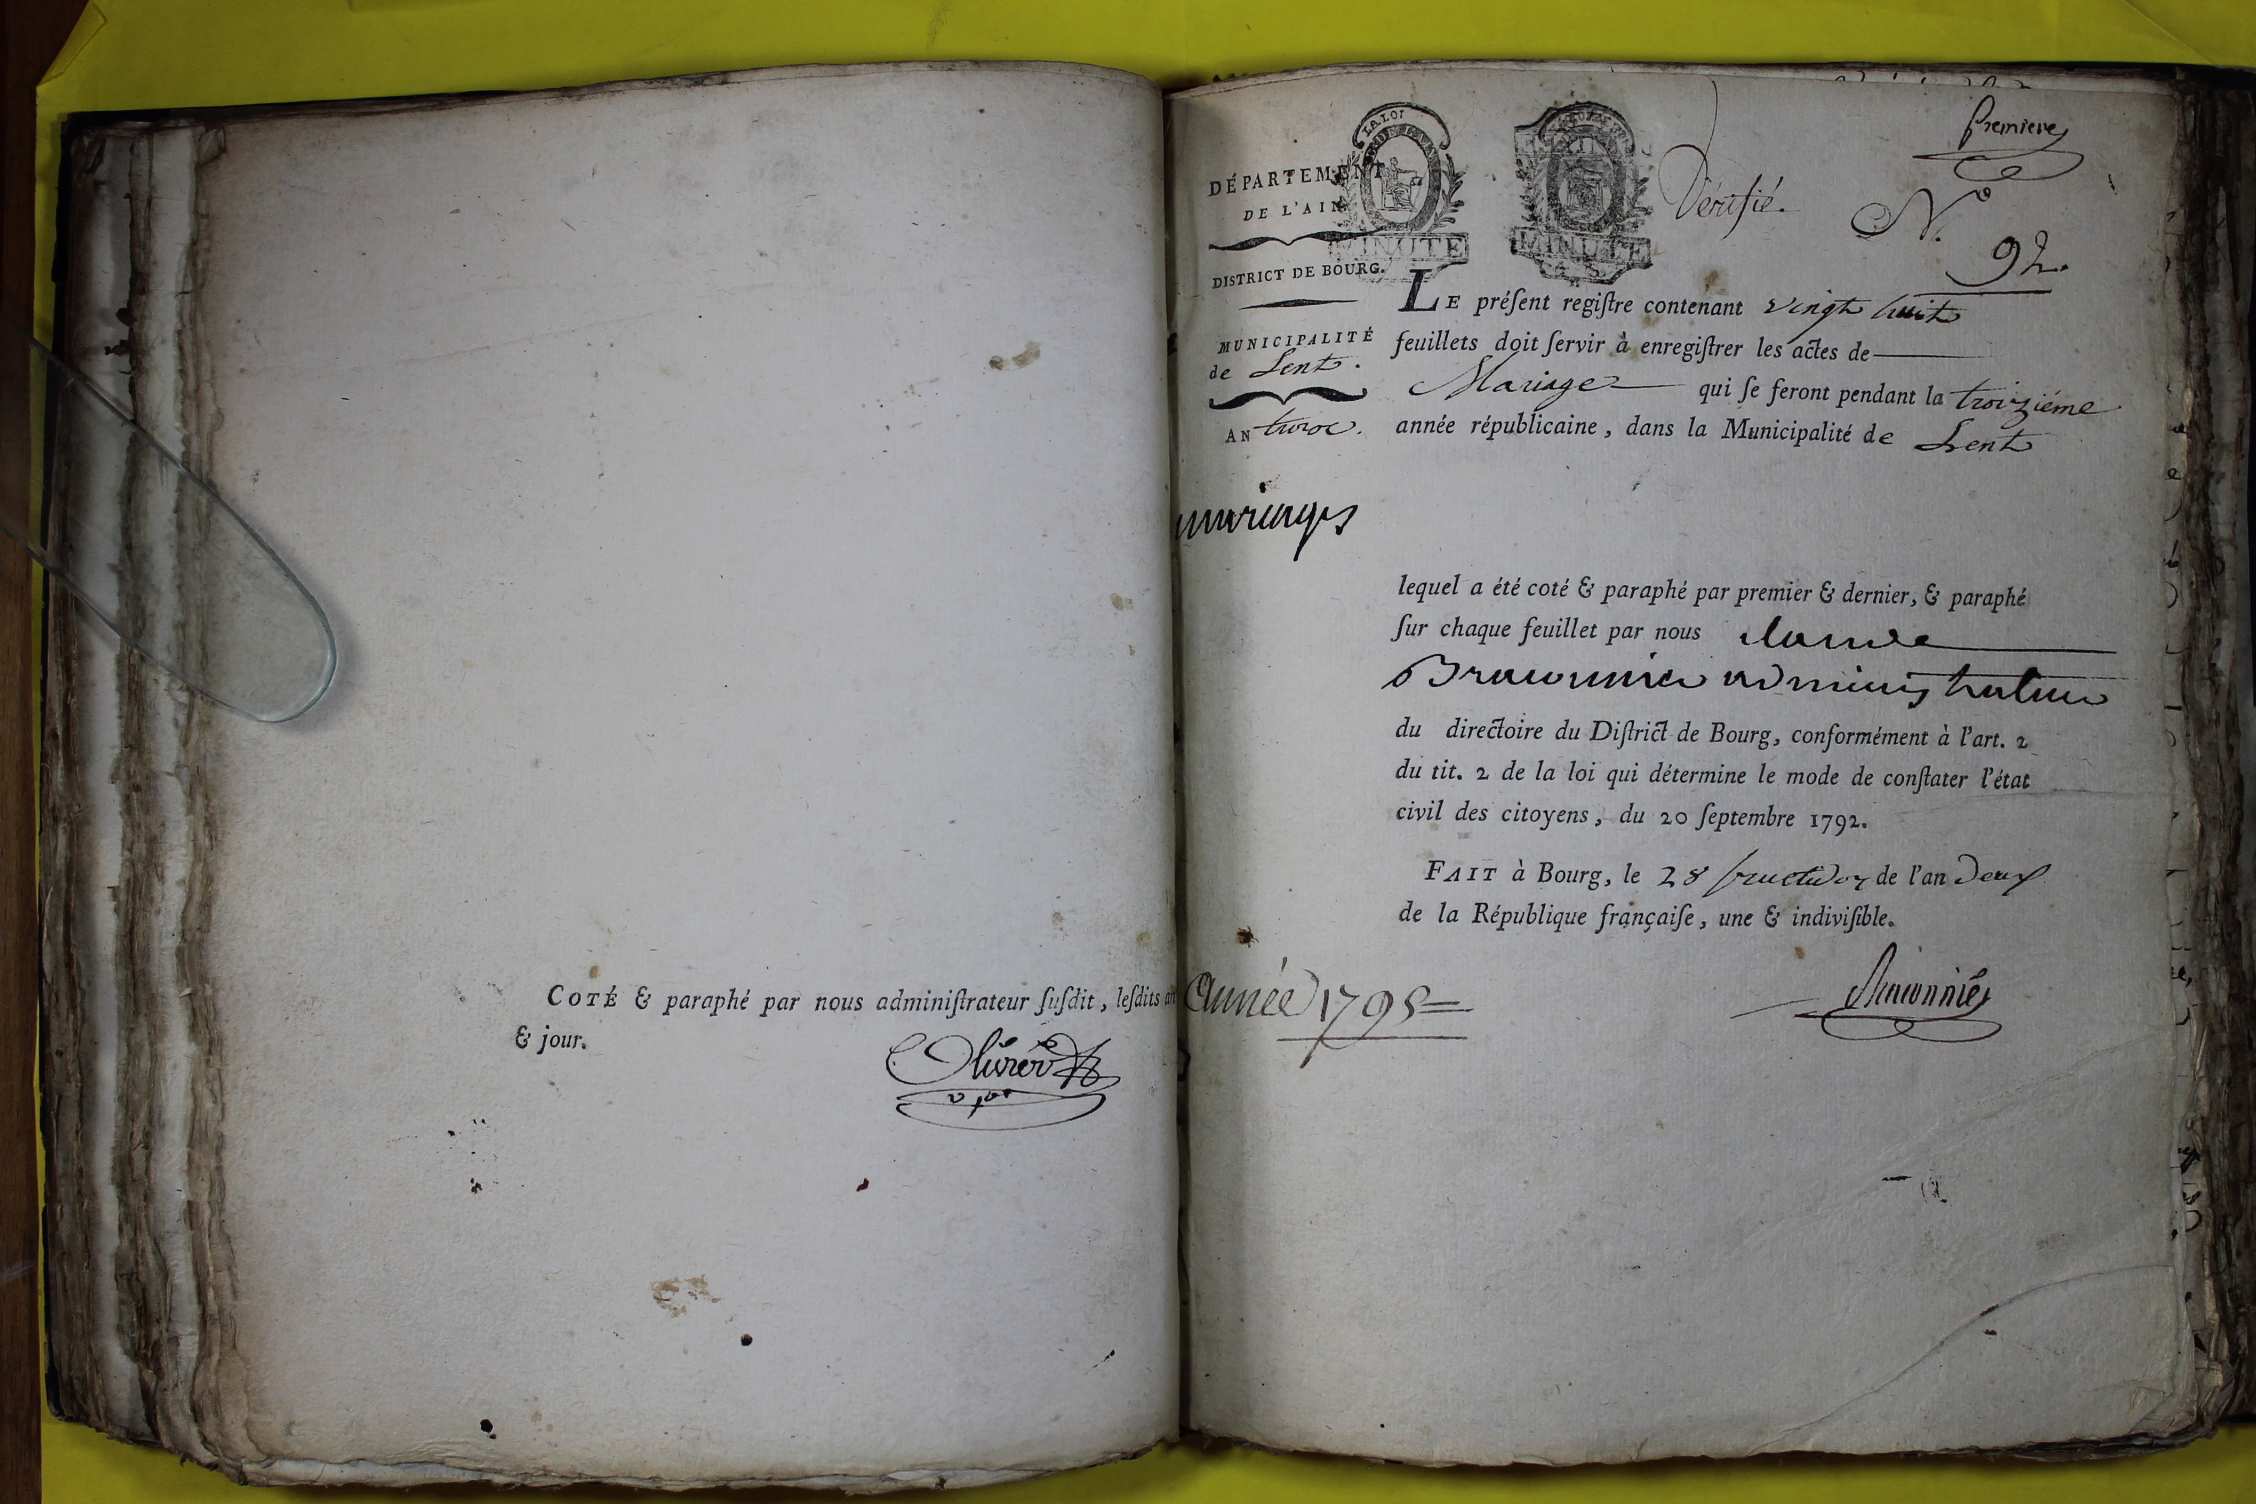 COTÉ & paraphé par nous adminiſtrateur ſuſdit, leſdits an
& jour.
Olivier
Premiere
LA LOI
MINUTE
MINUTE
Vérifié.
N.o
92.
DÉPARTEMENT
DE L'AIN.
DISTRICT DE BOURG.
MUNICIPALITÉ
de Lent.
AN trois.
mariages
Année 1795
LE préſent regiſtre contenant vingt huit
feuillets doit ſervir à enregiſtrer les actes de
Mariage qui ſe feront pendant la troiziéme
année républicaine, dans la Municipalité de Lent
lequel a été coté & paraphé par premier & dernier, & paraphé
ſur chaque feuillet par nous Claude
administrateur
du directoire du Diſtrict de Bourg, conformément à l'art. 2
du tit. 2 de la loi qui détermine le mode de conſtater l'état
civil des citoyens, du 20 ſeptembre 1792.
FAIT à Bourg, le 28 fructidor de l'an deux
de la République françaiſe, une & indiviſible.